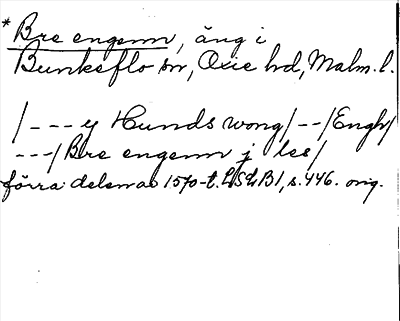 *Bre engenn, äng i
Bunkeflo sn, Oxie hd, Malm.l.
/---y Hunds wong/--/Engh/
---/Bre engenn j les/
förra delen av 1570-t. LSLB1, s.446. orig.